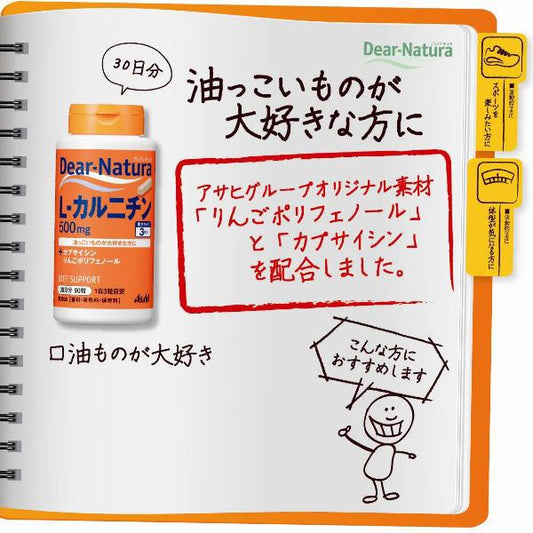 Dear-Natura
30日分
油っこいものが
大好きな方に
アサヒグループオリジナル素材
「りんごポリフェノール」
と「カプサイシン」
を配合しました。
Dear-Natura
L-カルニチン
500mg
3粒
油っこいものが大好きな方に
+カプサイシン
りんごポリフェノール
DIET SUPPORT
30日分 90粒 1日3粒目安
無添加 [香料・着色料・保存料]
Asahi
口油ものが大好き
こんな方に
おすすめします
スポーツを
楽しみたい方に
体型が気になる方に